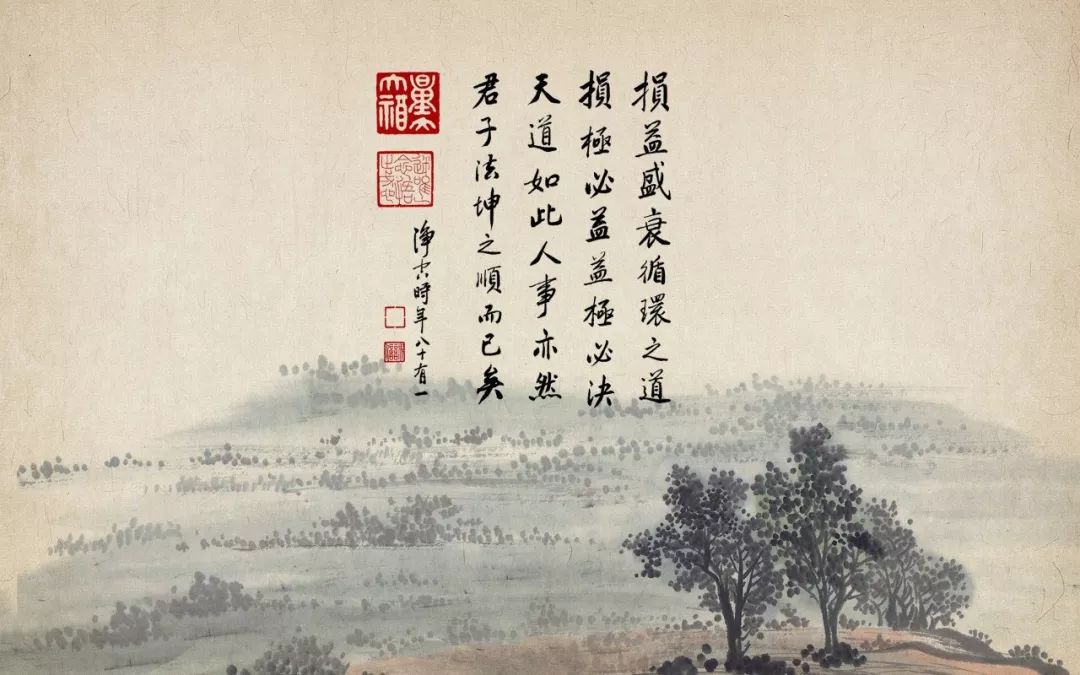 損益盛衰循環之道
損極必益益極必決
天道如此人事亦然
君子法坤之順而已矣
淨空時年八十有一
量大福大